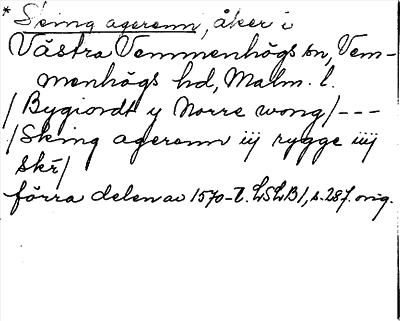 * Sking agerenn, åker i
Västra Vemmenhögs sn, Vem-
menhögs hd, Malm. l.
/Bygiondt y Norre wong/---
/Sking agerenn iij rygge iiij
skr̄/
förra delen av 1570-t. LSLB1, s. 287. orig.